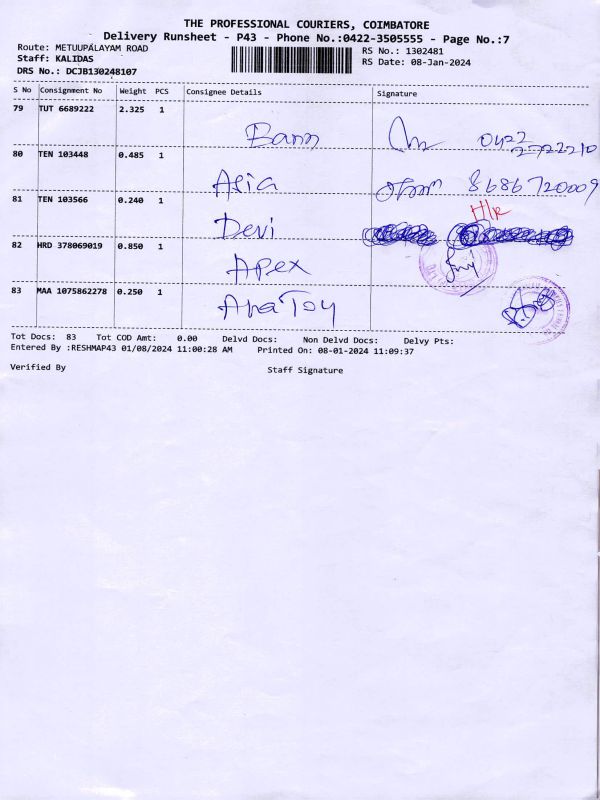 THE PROFESSIONAL COURIERS, COIMBATORE
Delivery Runsheet - P43 - Phone No.:0422-3505555 - Page No.:7
Route: METUUPALAYAM ROAD RS No.: 1302481
Staff: KALIDAS RS Date: 08-Jan-2024
DRS No.: DCJB130248107
S No Consignment No Weight PCS Consignee Details Signature
79 TUT 6689222 2.325 1
0422
2722210
80 TEN 103448 0.485 1
Asia 8686720009
81 TEN 103566 0.240 1
Devi
82 HRD 378069019 0.850 1
Apex
83 MAA 1075862278 0.250 1
Tot Docs: 83 Tot COD Amt: 0.00 Delvd Docs: Non Delvd Docs: Delvy Pts:
Entered By :RESHMAP43 01/08/2024 11:00:28 AM Printed On: 08-01-2024 11:09:37
Verified By Staff Signature